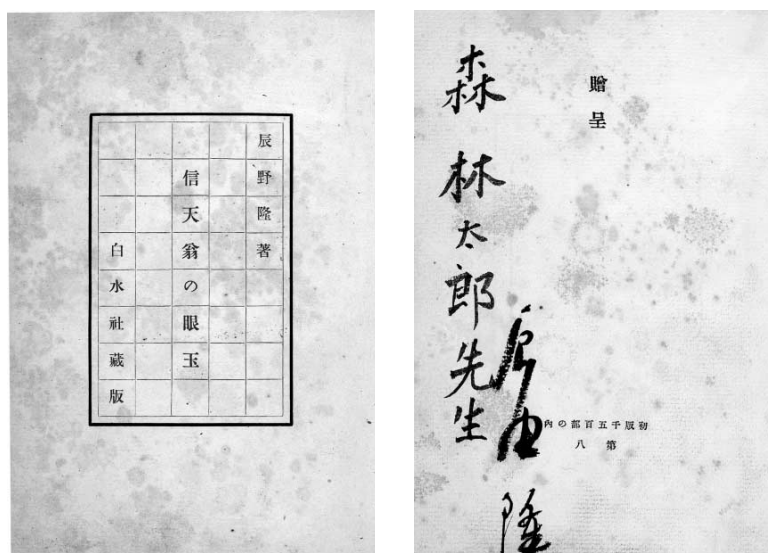 辰野隆著
信天翁の眼玉
白水社藏版
贈呈
森林太郎先生
辰野隆
初版千五百部の内
第八